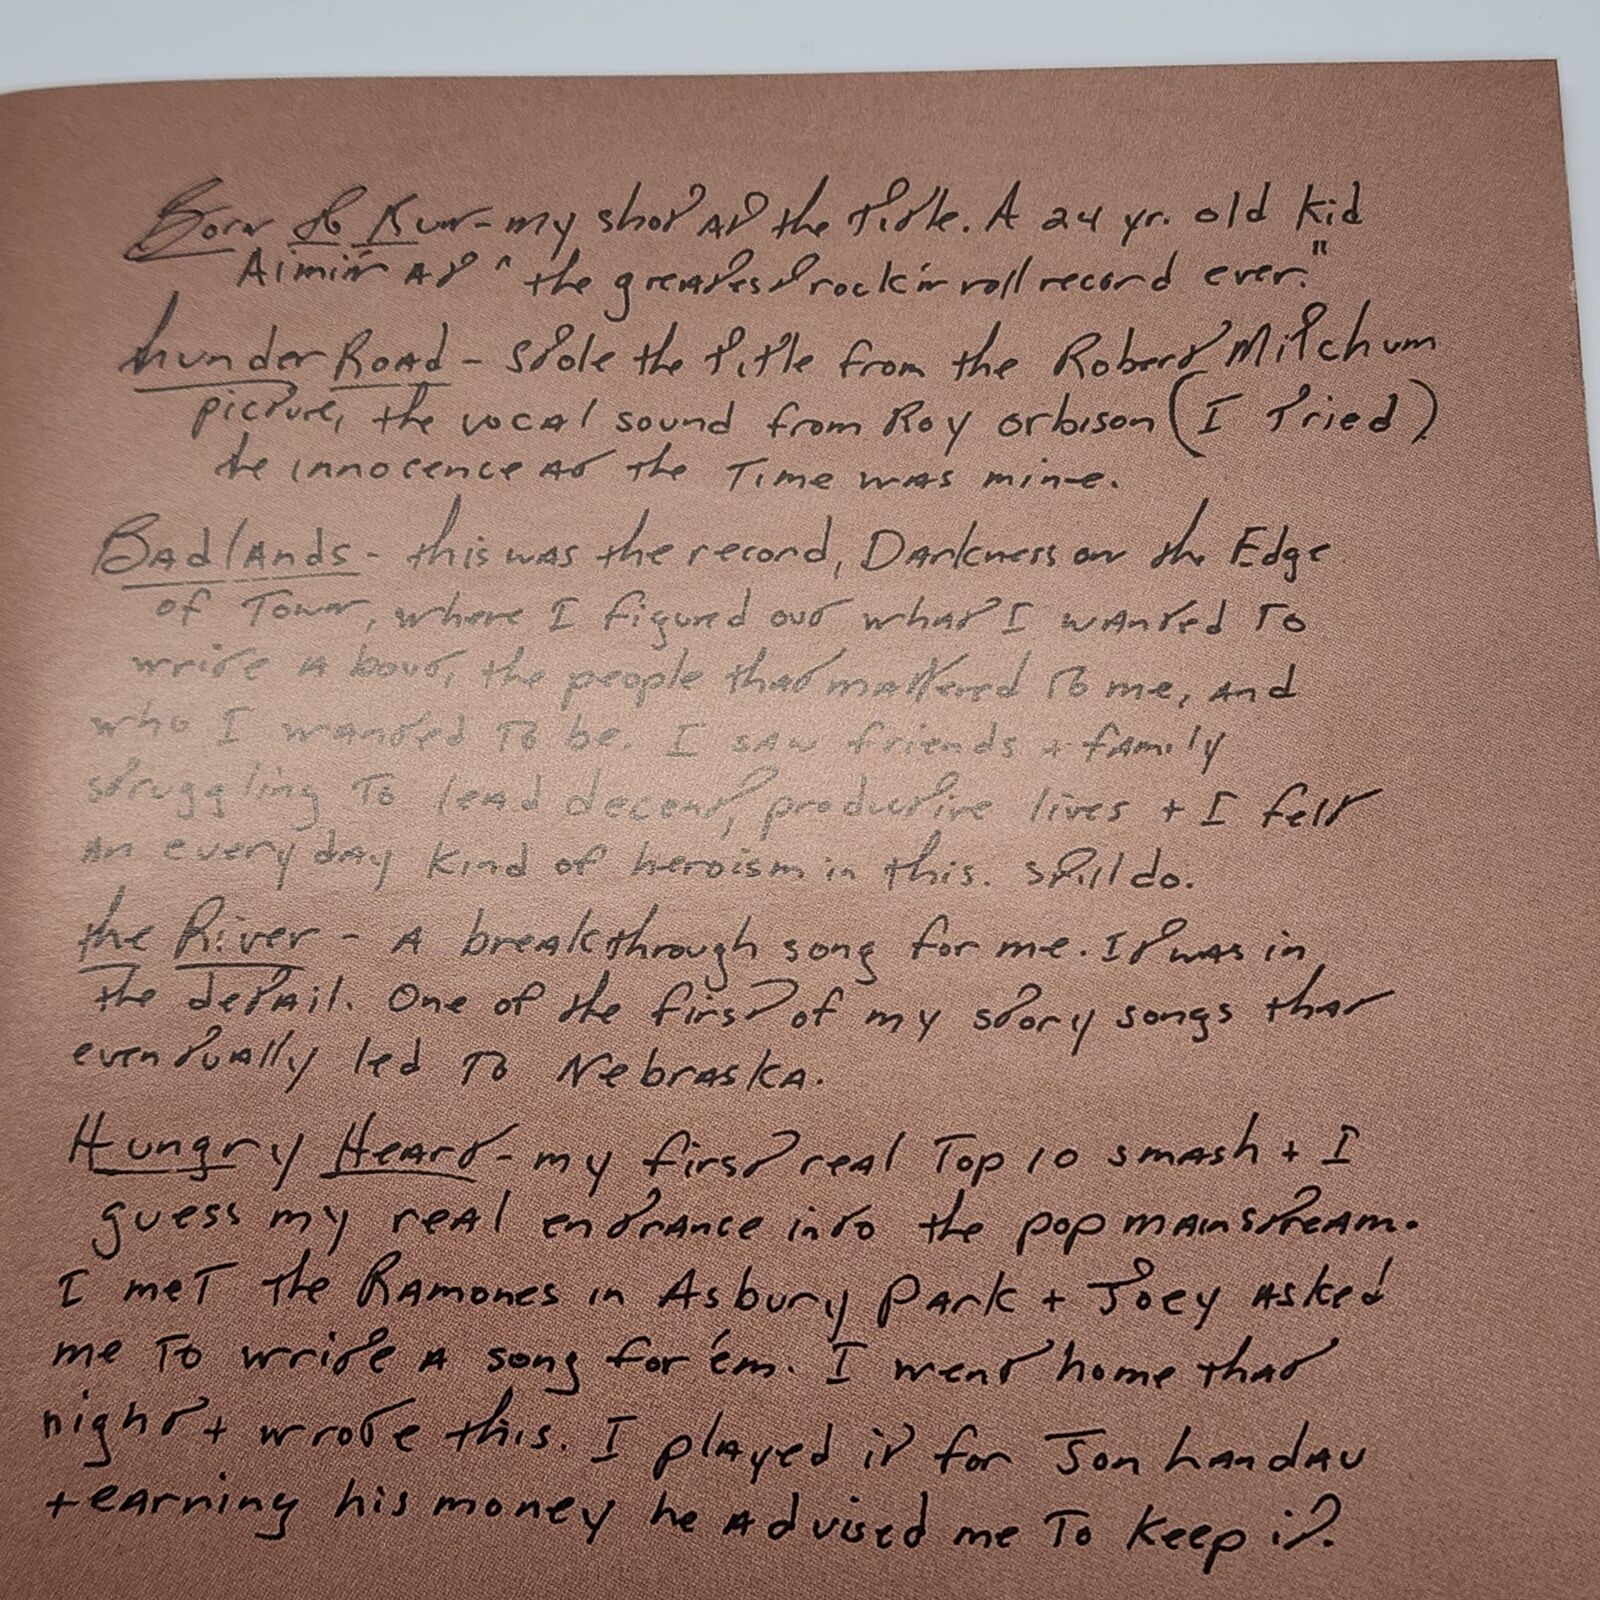 Born to Run - my shot at the title. A 24 yr. old kid
Aimin' At "the greatest rock 'n roll record ever."
thunder Road - Stole the title from the Robert Mitchum
picture, the vocal sound from Roy Orbison (I tried)
the innocence at the Time was mine.
Badlands - this was the record, Darkness on the Edge
of Town, where I figured out what I wanted To
write about, the people that mattered To me, and
who I wanted To be. I saw friends + family
struggling To lead decent, productive lives + I felt
an everyday kind of heroism in this. Still do.
the River - A breakthrough song for me. It was in
the detail. One of the first of my story songs that
eventually led To Nebraska.
Hungry Heart - my first real Top 10 smash + I
guess my real entrance into the pop mainstream.
I met the Ramones in Asbury Park + Joey asked
me To write A song for 'em. I went home that
night + wrote this. I played it for Jon Landau
+ earning his money he advised me To Keep it.